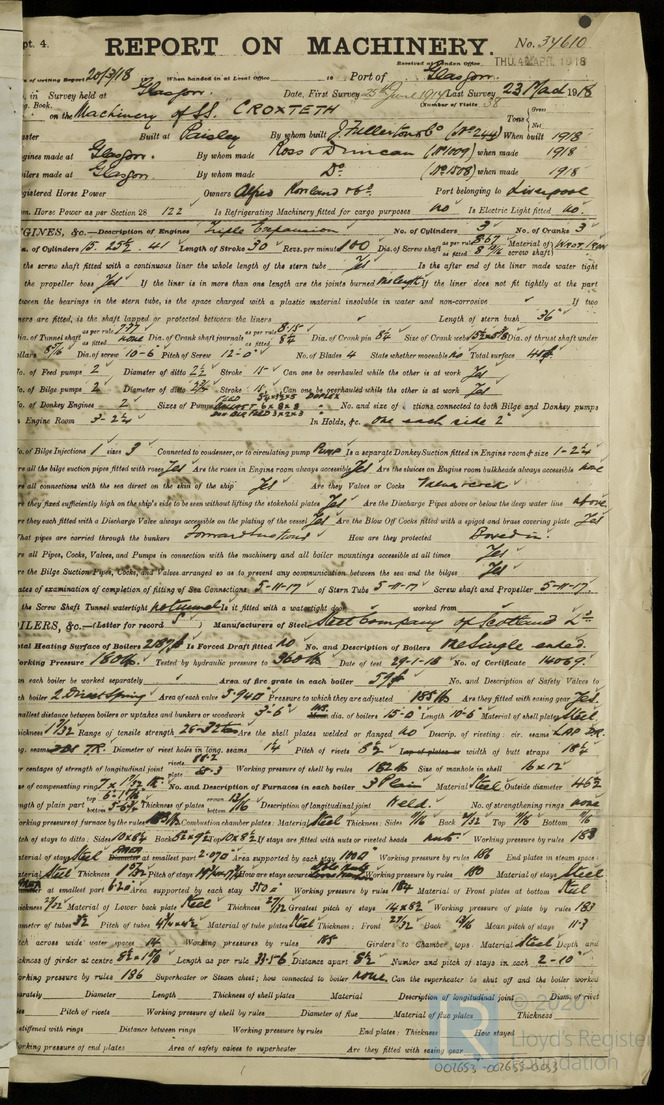 pt. 4. REPORT ON MACHINERY. No. 34610
Received at London Office THU. 4 APRIL 1918
of writing Report 20/3/18 When handed in at Local Office 10 Port of Glasgow.
in Survey held at Glasgow. Date, First Survey 25th June 1917 Last Survey 23 Mar 1918
g. Book. (Number of Visits 38
on the Machinery of SS. CROXTETH Tons Gross Net
aster Built at Paisley By whom built J. Fullerton & Co (No 244) When built 1918
ngines made at Glasgow. By whom made Ross & Duncan (No 1009) when made 1918
oilers made at Glasgow By whom made Do. (No 1508) when made 1918
gistered Horse Power Owners Alfred Rowland & Co. Port belonging to Liverpool
om. Horse Power as per Section 28 122 Is Refrigerating Machinery fitted for cargo purposes no Is Electric Light fitted no.
NGINES, &c.—Description of Engines Triple Expansion No. of Cylinders 3 No. of Cranks 3
a. of Cylinders 15. 25½. 41 Length of Stroke 30 Revs. per minute 100 Dia. of Screw shaft as per rule 8.67 as fitted 8 15/16 Material of screw shaft) WROT. IRON
the screw shaft fitted with a continuous liner the whole length of the stern tube Yes Is the after end of the liner made water tight
the propeller boss Yes If the liner is in more than one length are the joints burned one length If the liner does not fit tightly at the part
tween the bearings in the stern tube, is the space charged with a plastic material insoluble in water and non-corrosive If two
ners are fitted, is the shaft lapped or protected between the liners Length of stern bush 36"
ia. of Tunnel shaft as per rule 7.77 as fitted none Dia. of Crank shaft journals as per rule 8.15 as fitted 8¼ Dia. of Crank pin 8¼ Size of Crank webs Dia. of thrust shaft under
ollars 8 7/16 Dia. of screw 10-6 Pitch of Screw 12-0 No. of Blades 4 State whether moveable no Total surface
o. of Feed pumps 2 Diameter of ditto 2½ Stroke 15 Can one be overhauled while the other is at work Yes
o. of Bilge pumps 2 Diameter of ditto 2¾ Stroke 15 Can one be overhauled while the other is at work Yes
o. of Donkey Engines 2 Sizes of Pumps No. and size of ctions connected to both Bilge and Donkey pumps
Engine Room 3-2¼ In Holds, &c. one each side 2"
o. of Bilge Injections 1 sizes 3 Connected to condenser, or to circulating pump Pump Is a separate Donkey Suction fitted in Engine room & size 1-2¼
re all the bilge suction pipes fitted with roses Yes Are the roses in Engine room always accessible Yes Are the sluices on Engine room bulkheads always accessible none
re all connections with the sea direct on the skin of the ship Yes Are they Valves or Cocks
re they fixed sufficiently high on the ship's side to be seen without lifting the stokehold plates Yes Are the Discharge Pipes above or below the deep water line above
re they each fitted with a Discharge Valve always accessible on the plating of the vessel Yes Are the Blow Off Cocks fitted with a spigot and brass covering plate Yes
hat pipes are carried through the bunkers Forward suctions How are they protected Boxed in.
re all Pipes, Cocks, Valves, and Pumps in connection with the machinery and all boiler mountings accessible at all times Yes
re the Bilge Suction Pipes, Cocks, and Valves arranged so as to prevent any communication between the sea and the bilges Yes
ates of examination of completion of fitting of Sea Connections 5-11-17 of Stern Tube 5-11-17 Screw shaft and Propeller 5-11-17
the Screw Shaft Tunnel watertight no tunnel Is it fitted with a watertight door worked from
ILERS, &c.—(Letter for record S) Manufacturers of Steel Steel Company of Scotland Ld.
otal Heating Surface of Boilers Is Forced Draft fitted no No. and Description of Boilers One Single ended.
orking Pressure 180 lb. Tested by hydraulic pressure to 360 lb Date of test 29-1-18 No. of Certificate 14069.
n each boiler be worked separately Area of fire grate in each boiler No. and Description of Safety Valves to
ch boiler 2 Direct Spring Area of each valve 5.94 Pressure to which they are adjusted 185 lb Are they fitted with easing gear Yes.
mallest distance between boilers or uptakes and bunkers or woodwork 3'-6" dia. of boilers 15-0 Length 10-6 Material of shell plates Steel
hickness 1 7/32 Range of tensile strength 28-32 tons Are the shell plates welded or flanged no Descrip. of riveting: cir. seams LAP DR.
ng. seams TR. Diameter of rivet holes in long. seams 1¼ Pitch of rivets 8½ Lap of plates or width of butt straps 18¼
r centages of strength of longitudinal joint rivets 88.2 plate 85.3 Working pressure of shell by rules 182 lb Size of manhole in shell 16 x 12
e of compensating ring 7 x 1 7/32 No. and Description of Furnaces in each boiler 3 Plain Material Steel Outside diameter 46½
ngth of plain part top bottom Thickness of plates crown bottom Description of longitudinal joint Weld. No. of strengthening rings none
orking pressure of furnace by the rules Combustion chamber plates: Material Steel Thickness: Sides Back Top Bottom
tch of stays to ditto: Sides 10x8½ Back Top 10x8½ If stays are fitted with nuts or riveted heads nuts. Working pressure by rules 183
aterial of stays Steel Area at smallest part 2.07 Area supported by each stay Working pressure by rules 186 End plates in steam space:
aterial Steel Thickness 1 5/32 Pitch of stays How are stays secured Working pressure by rules 180 Material of stays Steel
at smallest part 6.20 Area supported by each stay 350 Working pressure by rules 184 Material of Front plates at bottom Steel
ickness Material of Lower back plate Steel Thickness 27/32 Greatest pitch of stays 14x8½ Working pressure of plate by rules 183
ameter of tubes 3½ Pitch of tubes Material of tube plates Steel Thickness: Front 27/32 Back 13/16 Mean pitch of stays 11.3
tch across wide water spaces 14 Working pressures by rules 185 Girders to Chamber tops: Material Steel Depth and
ickness of girder at centre Length as per rule Distance apart 8½ Number and pitch of stays in each 2-10"
orking pressure by rules 186 Superheater or Steam chest; how connected to boiler none. Can the superheater be shut off and the boiler worked
arately Diameter Length Thickness of shell plates Material Description of longitudinal joint Diam. of rivet
les Pitch of rivets Working pressure of shell by rules Diameter of flue Material of flue plates Thickness
stiffened with rings Distance between rings Working pressure by rules End plates: Thickness How stayed
orking pressure of end plates Area of safety valves to superheater Are they fitted with easing gear
© 2020
Lloyd's Register
Foundation
002653-002655-0053